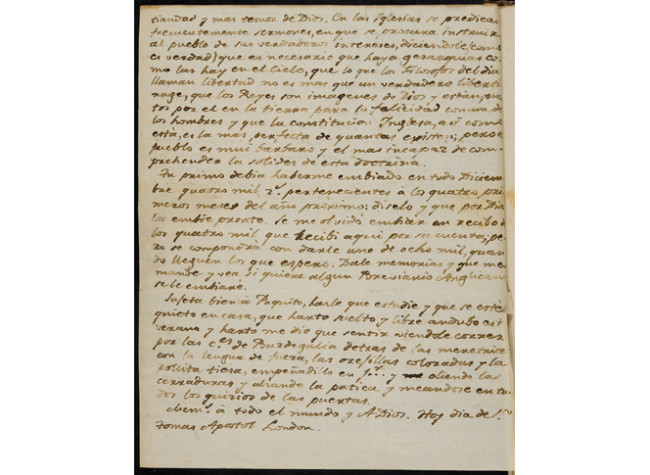 tiandad y mas temor de Dios. En las Iglesias se predican
frecuentemente sermones, en que se procura instruir
al pueblo de sus verdaderos intereses, diciendole (como
es verdad) que es necesario que haya gerarquias co
mo las hay en el Cielo, que lo que los filosofos del dia
llaman libertad no es mas que un verdadero liberti
nage, que los Reyes son imagenes de Dios y estan pues
tos por el en la tierra para la felicidad comun de
los hombres y que la constitucion Inglesa, asi como
està, es la mas perfecta de quantas existen; pero el
pueblo es mui barbaro y el mas incapaz de com
prehender la solidez de esta doctrina.
Tu primo debia haberme embiado en todo Diciem
bre quatro mil r.s pertenecientes à los quatro pri
meros meses del año proximo: diselo y que por Dios
los embie pronto. Se me olvidó embiar un recibo de
los quatro mil que recibi aqui por su cuenta; pe
ro se compondrà con darle uno de ocho mil, quan
do lleguen los que espero. Dale memorias y que me
mande y vea si quiere algun Breviario Anglicano
se le embiarè.
Sujeta bien à Paquito, hazle que estudie y que se estè
quieto en casa, que harto suelto y libre andubo este
verano y harto me diò que sentir viendole correr
por las c.es de Burdegalia detras de las meretrices
con la lengua de fuera, las orejillas coloradas y la
pollita tiesa, empeñadillo en y oliendo las
cerraduras y alzando la patica y meandose en to
dos los quicios de las puertas.
Mem.s à todo el mundo y A Dios. Hoy dia de S.to
Tomas Apostol London.